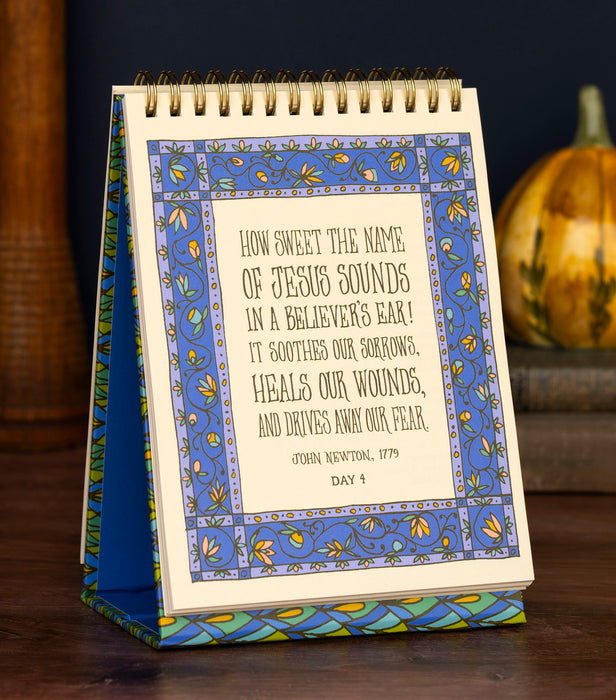 HOW SWEET THE NAME
OF JESUS SOUNDS
IN A BELIEVER'S EAR!
IT SOOTHES OUR SORROWS,
HEALS OUR WOUNDS,
AND DRIVES AWAY OUR FEAR.
JOHN NEWTON, 1779
DAY 4